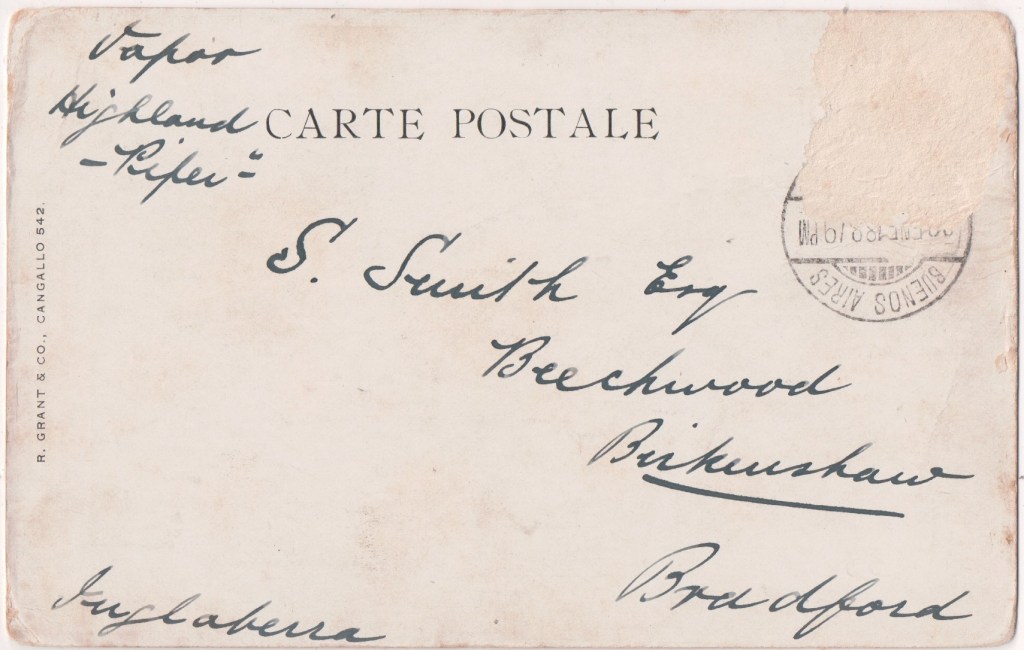 Vapor
Highland
-Piper"-
CARTE POSTALE
R. GRANT & CO., CANGALLO 542.
BUENOS AIRES
9 PM
S. Smith Esq
Beechwood
Birkenshaw
Bradford
Inglaterra